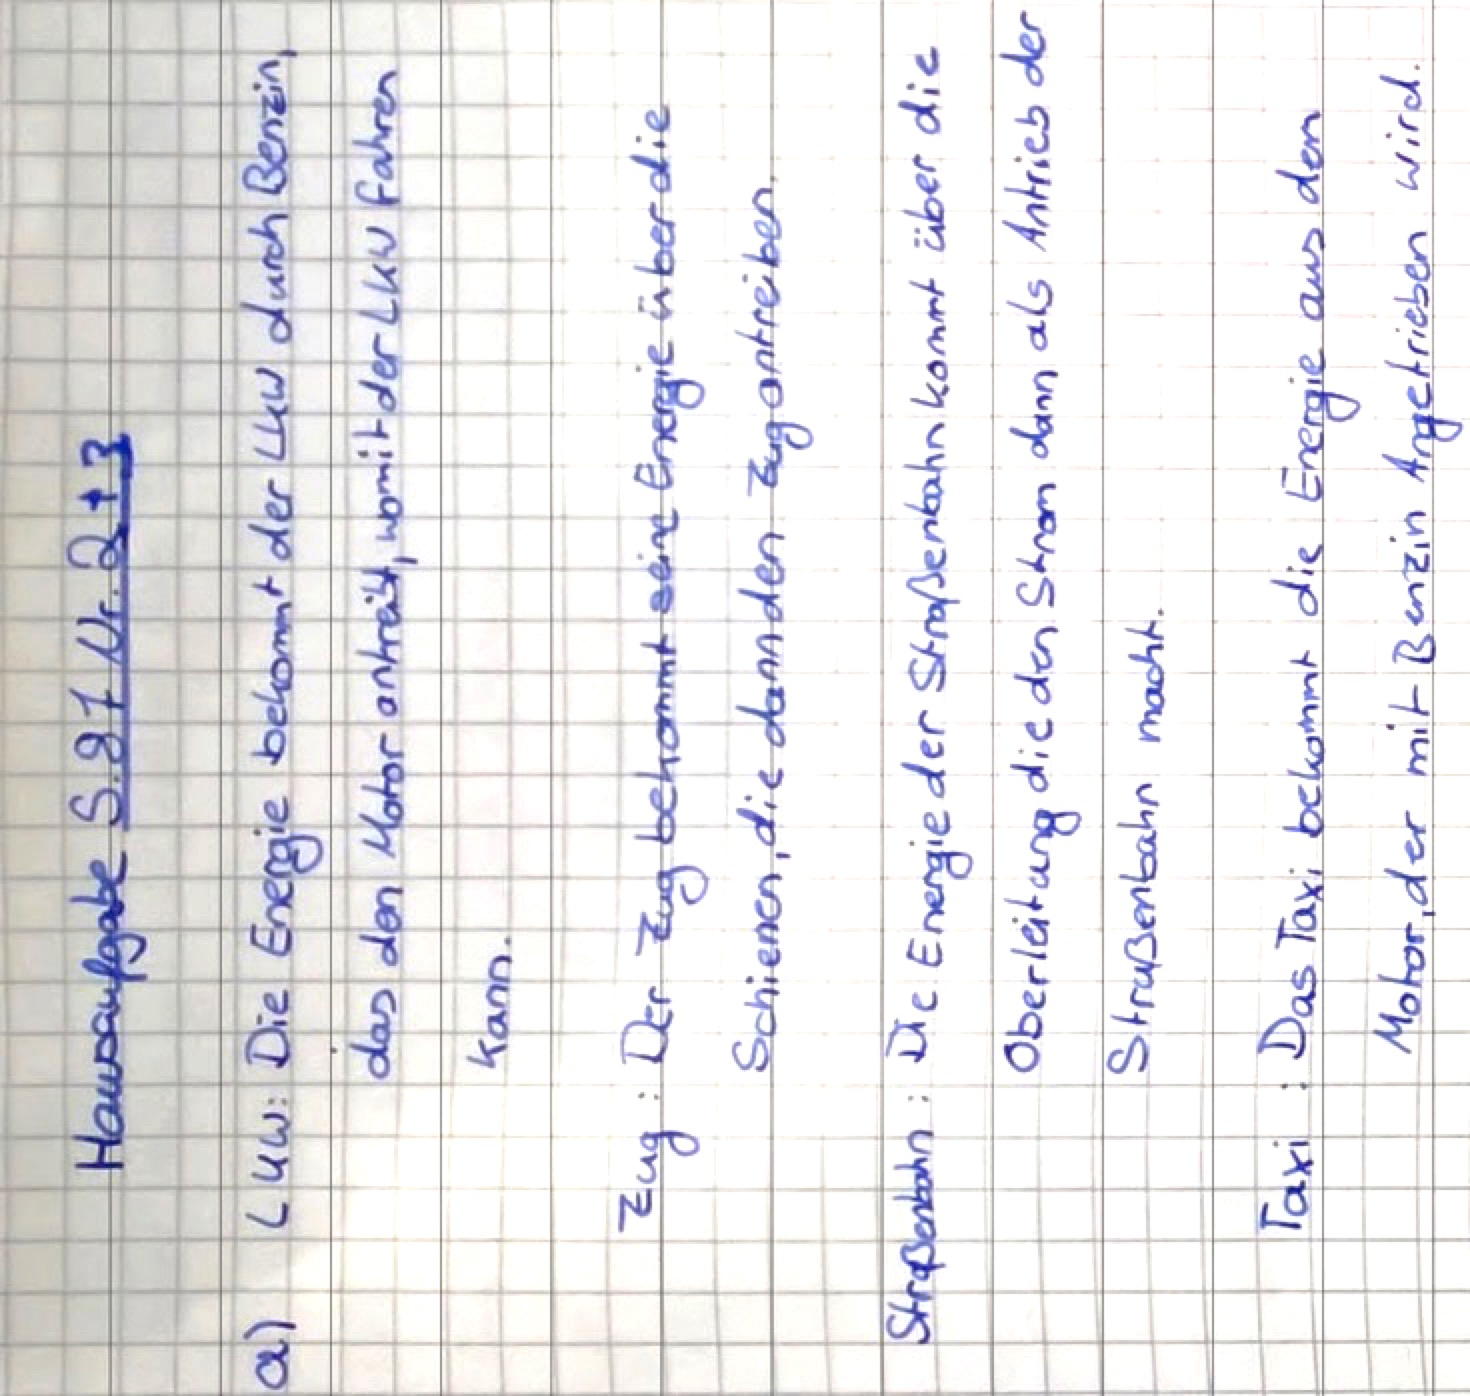 Hausaufgabe S.91 Nr. 2+3
a) LKW: Die Energie bekommt der LKW durch Benzin,
das den Motor antreibt, womit der LKW fahren
kann.
Zug: Der Zug bekommt seine Energie über die
Schienen, die dann den Zug antreiben.
Straßenbahn: Die Energie der Straßenbahn kommt über die
Oberleitung die den Strom dann als Antrieb der
Straßenbahn macht.
Taxi: Das Taxi bekommt die Energie aus dem
Motor, der mit Benzin Angetrieben wird.